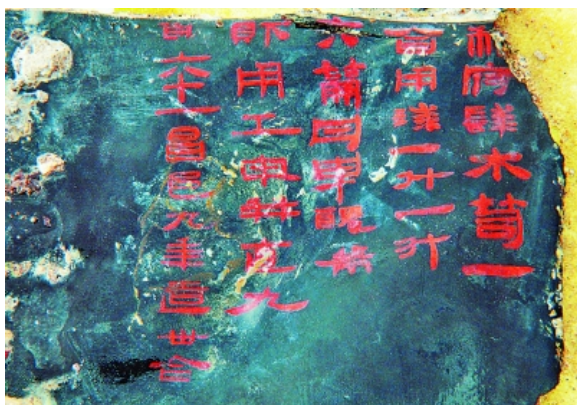 私府髹木笥一
合用漆一斗一升
六籥丹臾丑布
財用工牢并直九
百六十一昌邑九年造卅合